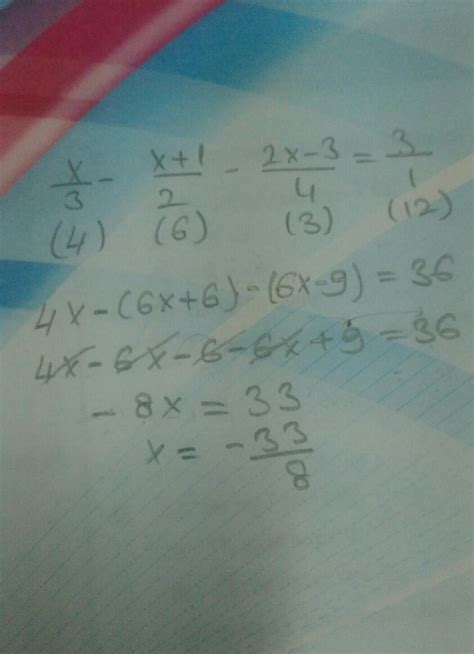 x/3 - x+1/2 - 2x-3/4 = 3/1
(4) (6) (3) (12)
4x-(6x+6)-(6x-9)=36
4x-6x-6-6x+9=36
-8x=33
x=-33/8